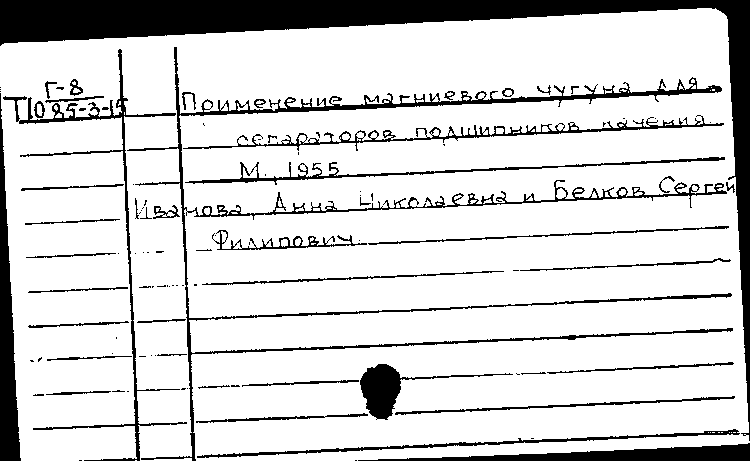 Г-8
П085-3-15
Применение магниевого чугуна для
сепараторов подшипников качения
М., 1955
Иванова, Анна Николаевна и Белков, Сергей
Филипович